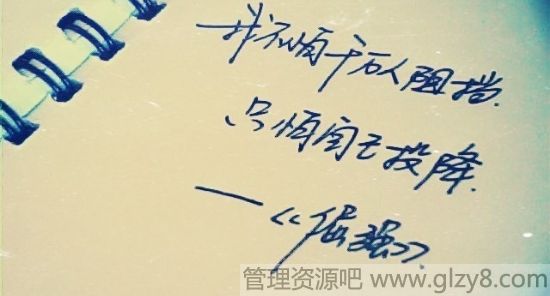 我不怕千万人阻挡.
只怕自己投降.
—《倔强》.
管理资源吧 www.glzy8.com